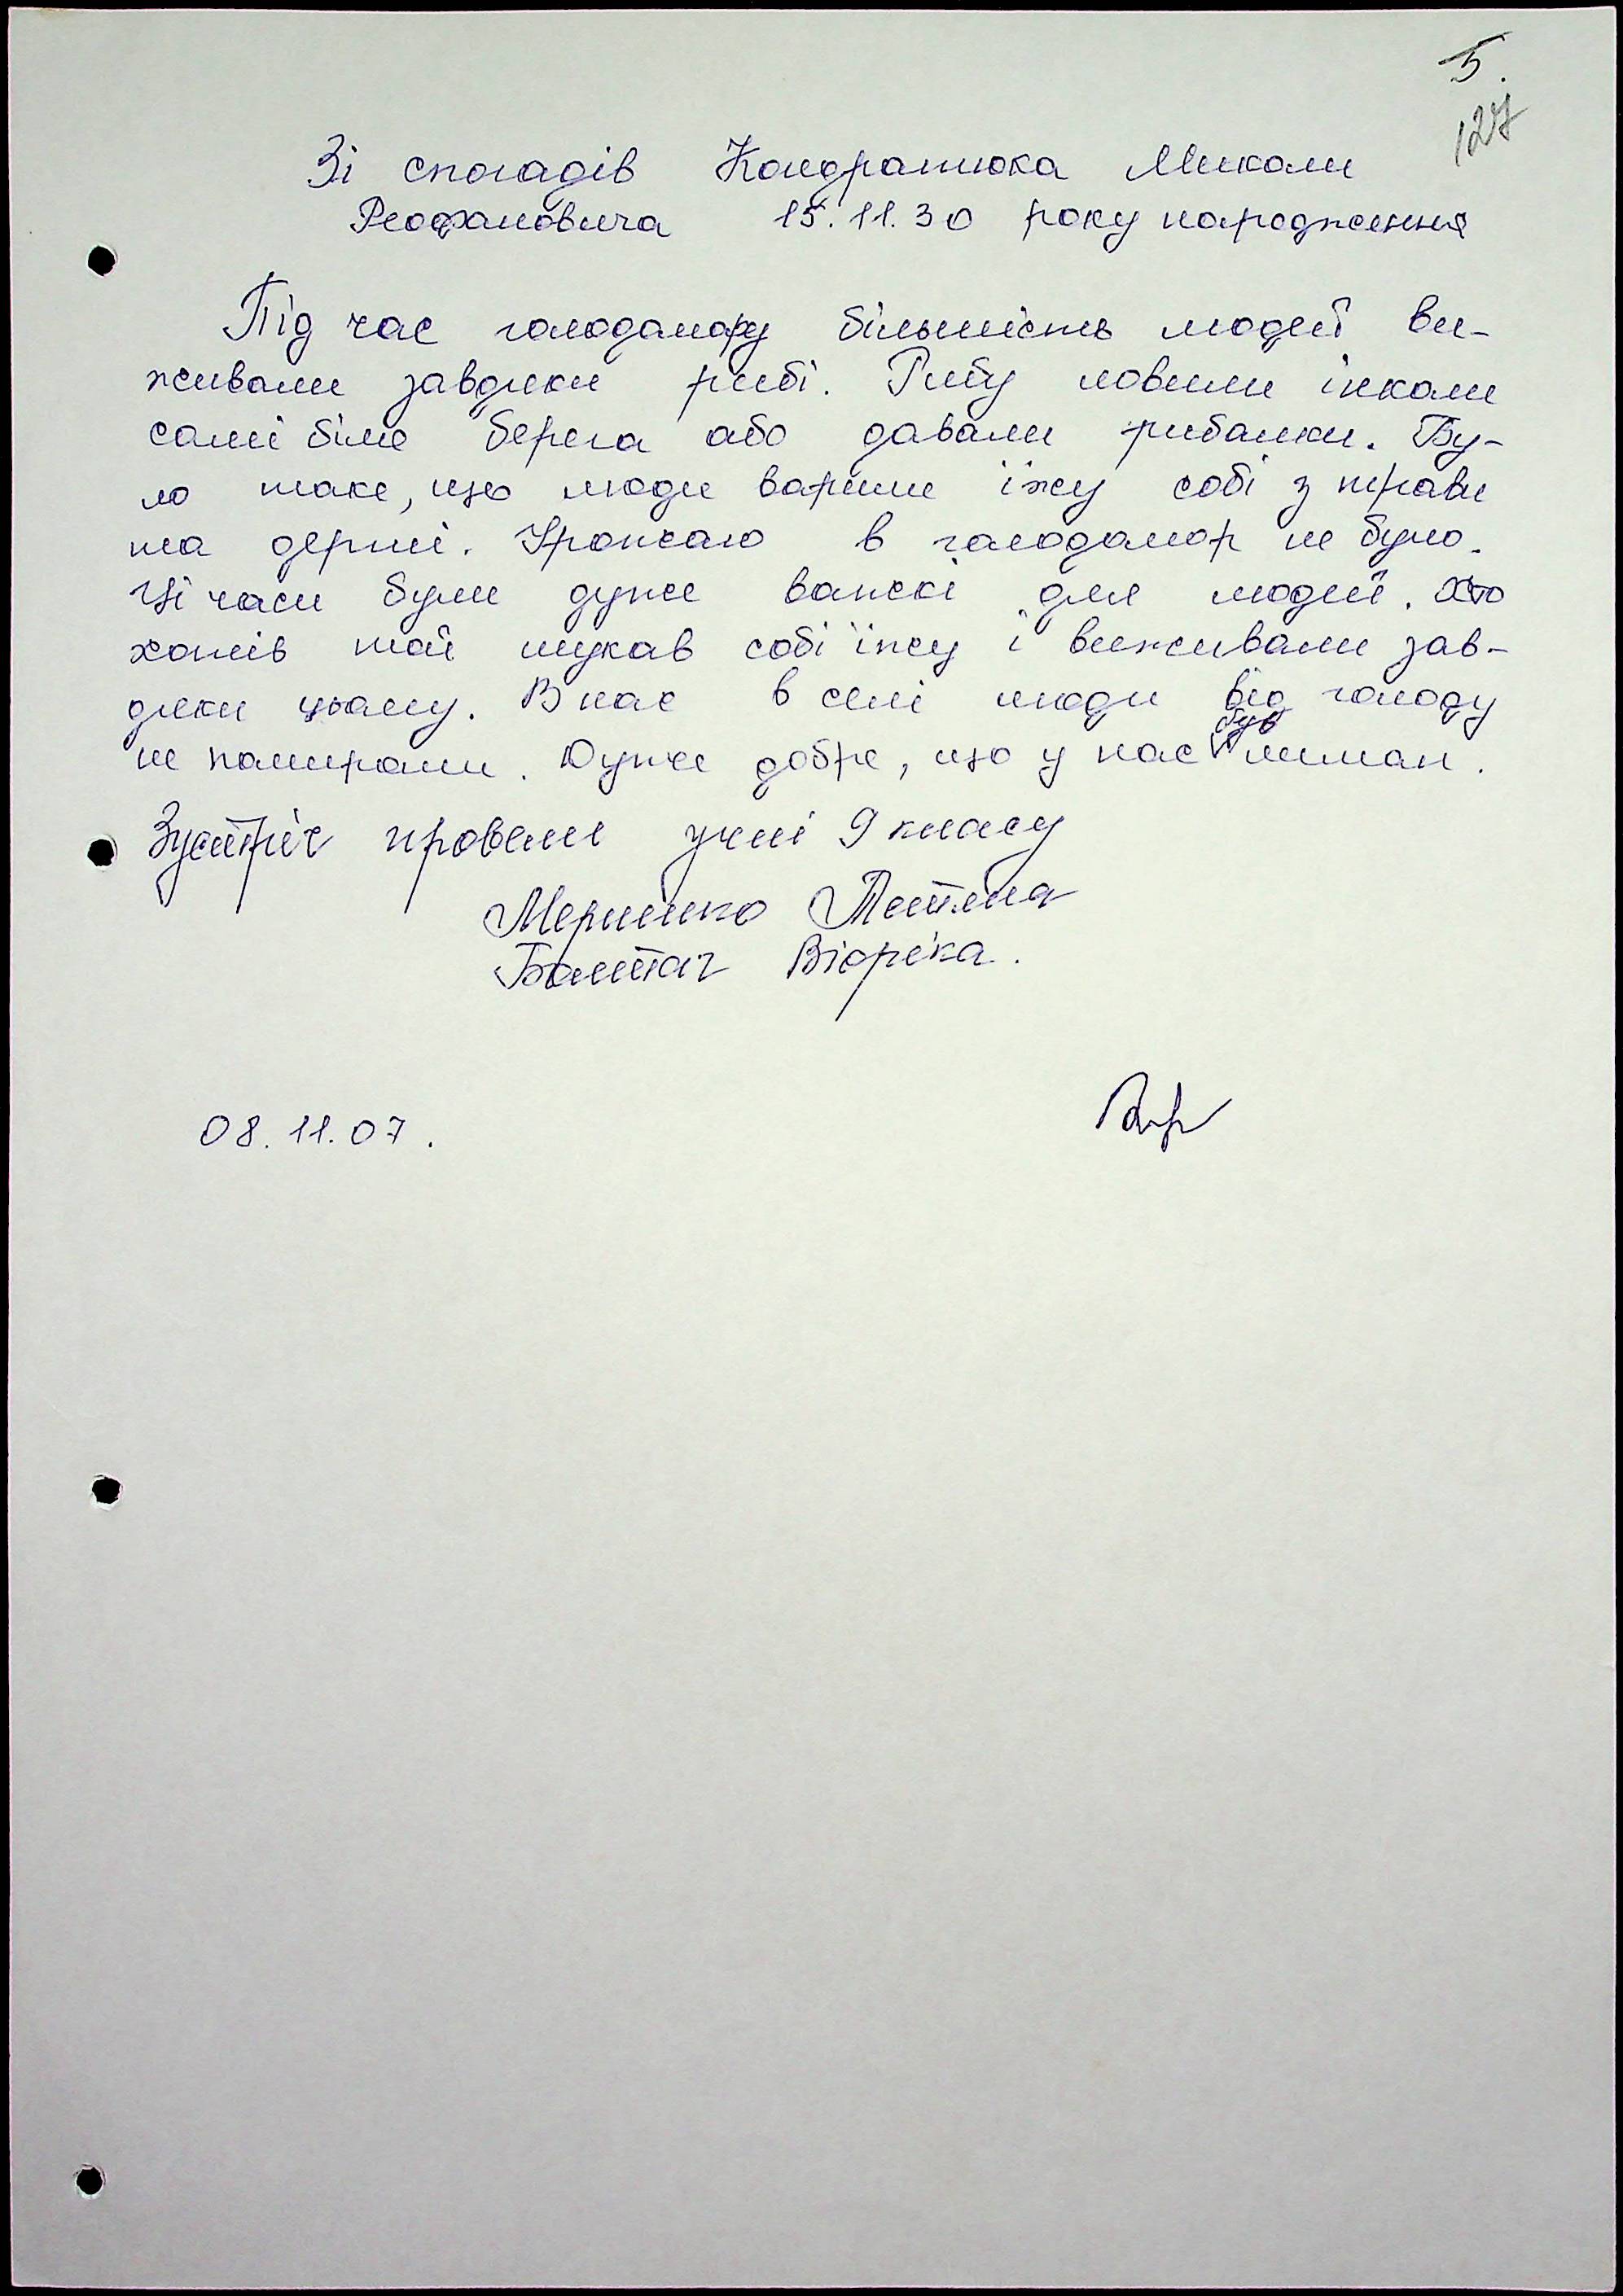 5.
127
Зі спогадів Кондратюка Миколи
Феофановича 15.11.30 року народження
Під час голодомору більшість людей ви-
живали завдяки рибі. Рибу ловили інколи
самі біля берега або давали рибалки. Бу-
ло таке, що люди варили їжу собі з трави
та дерті. Урожаю в голодомор не було.
Ці часи були дуже важкі для людей. Хто
хотів той шукав собі їжу і виживали зав-
дяки цьому. В нас в селі люди від голоду
не помирали. Дуже добре, що у нас був лиман.
Зустріч провели учні 9 класу
Тетяна
Баштач Віоріка.
08.11.07.